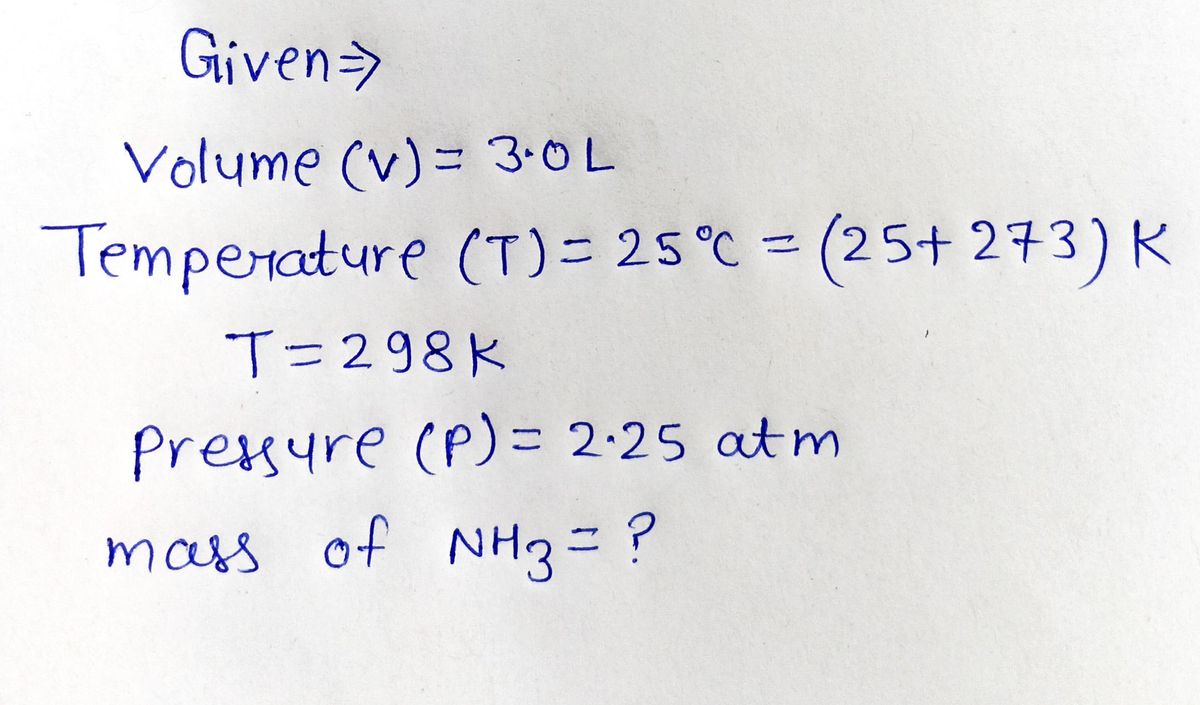 Given⇒
Volume (V) = 3.0 L
Temperature (T) = 25°C = (25+273) K
T = 298 K
Pressure (P) = 2.25 atm
mass of NH₃ = ?